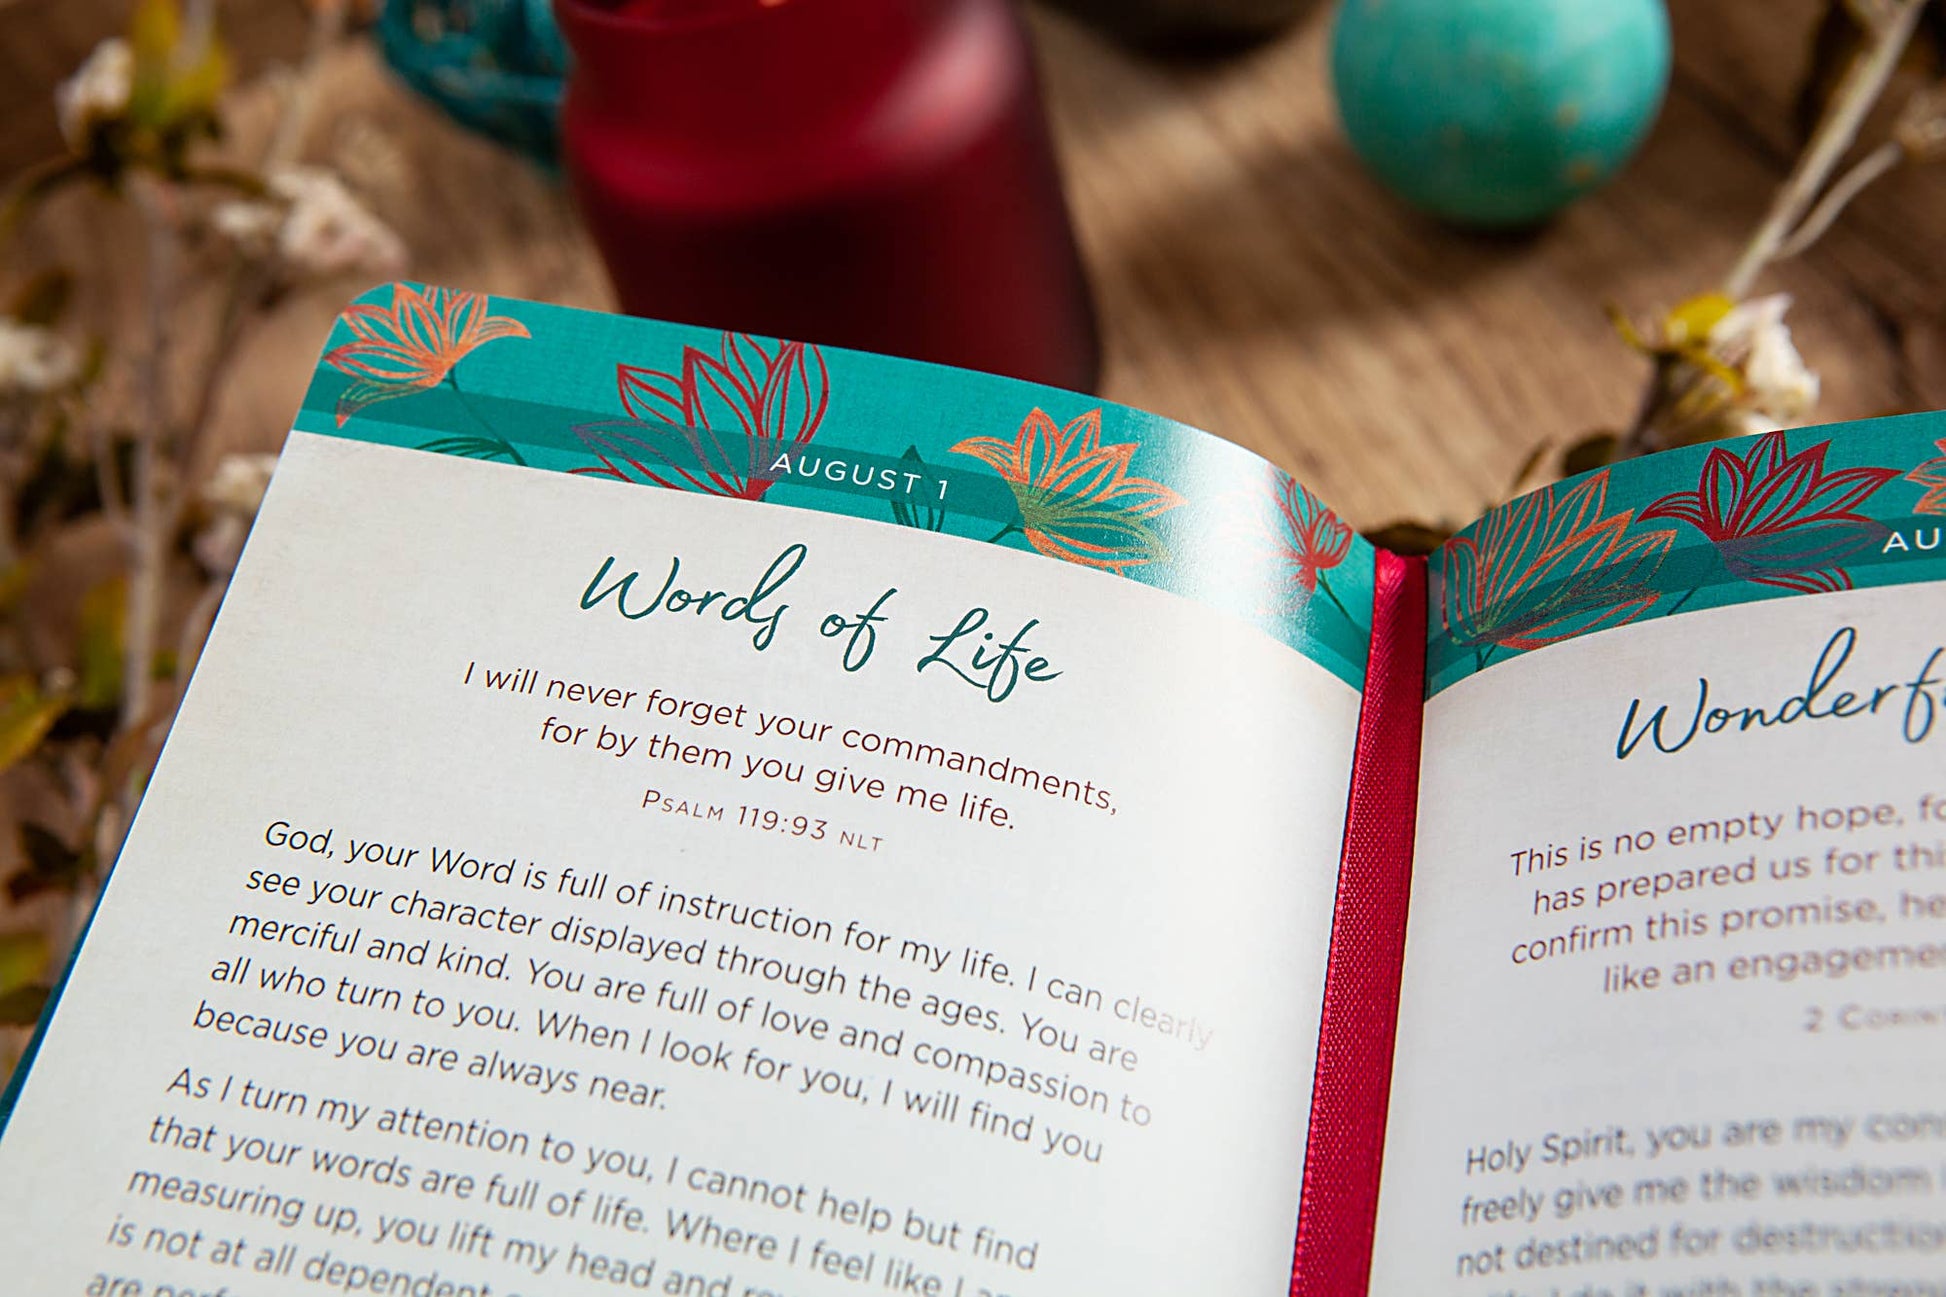 AUGUST 1
Words of Life
I will never forget your commandments,
for by them you give me life.
PSALM 119:93 NLT
God, your Word is full of instruction for my life. I can clearly
see your character displayed through the ages. You are
merciful and kind. You are full of love and compassion to
all who turn to you. When I look for you, I will find you
because you are always near.
As I turn my attention to you, I cannot help but find
that your words are full of life. Where I feel like I
measuring up, you lift my head and
is not at all dependent
are
AU
Wonderf
This is no empty hope,
has prepared us for
confirm this promise, he
like an engageme
2
Holy Spirit, you are my
freely give me the wisdom
not destined for destruction